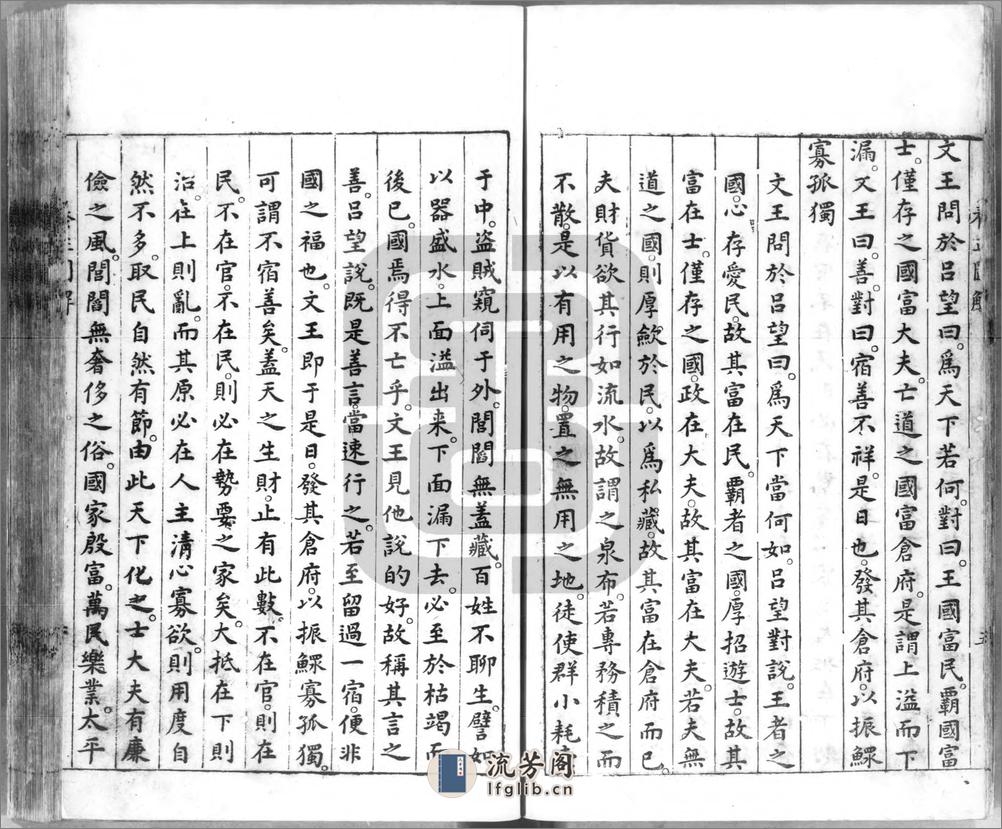 文王問於呂望曰。爲天下若何。對曰。王國富民。覇國富
士。僅存之國富大夫。亡道之國富倉府。是謂上溢而下
漏。文王曰。善。對曰。宿善不祥。是日也。發其倉府。以振鰥
寡孤獨
文王問於呂望曰。爲天下當何如。呂望對說。王者之
國。心存愛民。故其富在民。覇者之國。厚招遊士。故其
富在士。僅存之國。政在大夫。故其富在大夫。若夫無
道之國。則厚歛於民。以爲私藏。故其富在倉府而已。
夫財貨欲其行如流水。故謂之泉布。若專務積之而
不散。是以有用之物。置之無用之地。徒使群小耗
于中。盜賊窺伺于外。閭閻無蓋藏。百姓不聊生。譬如
以器盛水。上面溢出来。下面漏下去。必至於枯竭而
後已。國焉得不亡乎。文王見他說的好。故稱其言之
善。呂望說。既是善言。當速行之。若至留過一宿。便非
國之福也。文王即于是日。發其倉府。以振鰥寡孤獨。
可謂不宿善矣。蓋天之生財。止有此數。不在官。則在
民。不在官。不在民。則必在勢要之家矣。大抵在下則
治。在上則亂。而其原必在人主清心寡欲。則用度自
然不多。取民自然有節。由此天下化之。士大夫有廉
儉之風。閭閻無奢侈之俗。國家殷富。萬民樂業。太平
流芳阁
lfglib.cn